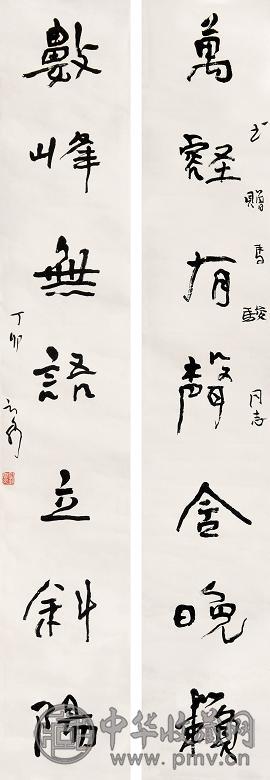 萬壑有聲含晚籟
書贈馬駿同志
數峰無語立斜陽
丁卯
中华收藏网
www.pmv.cn